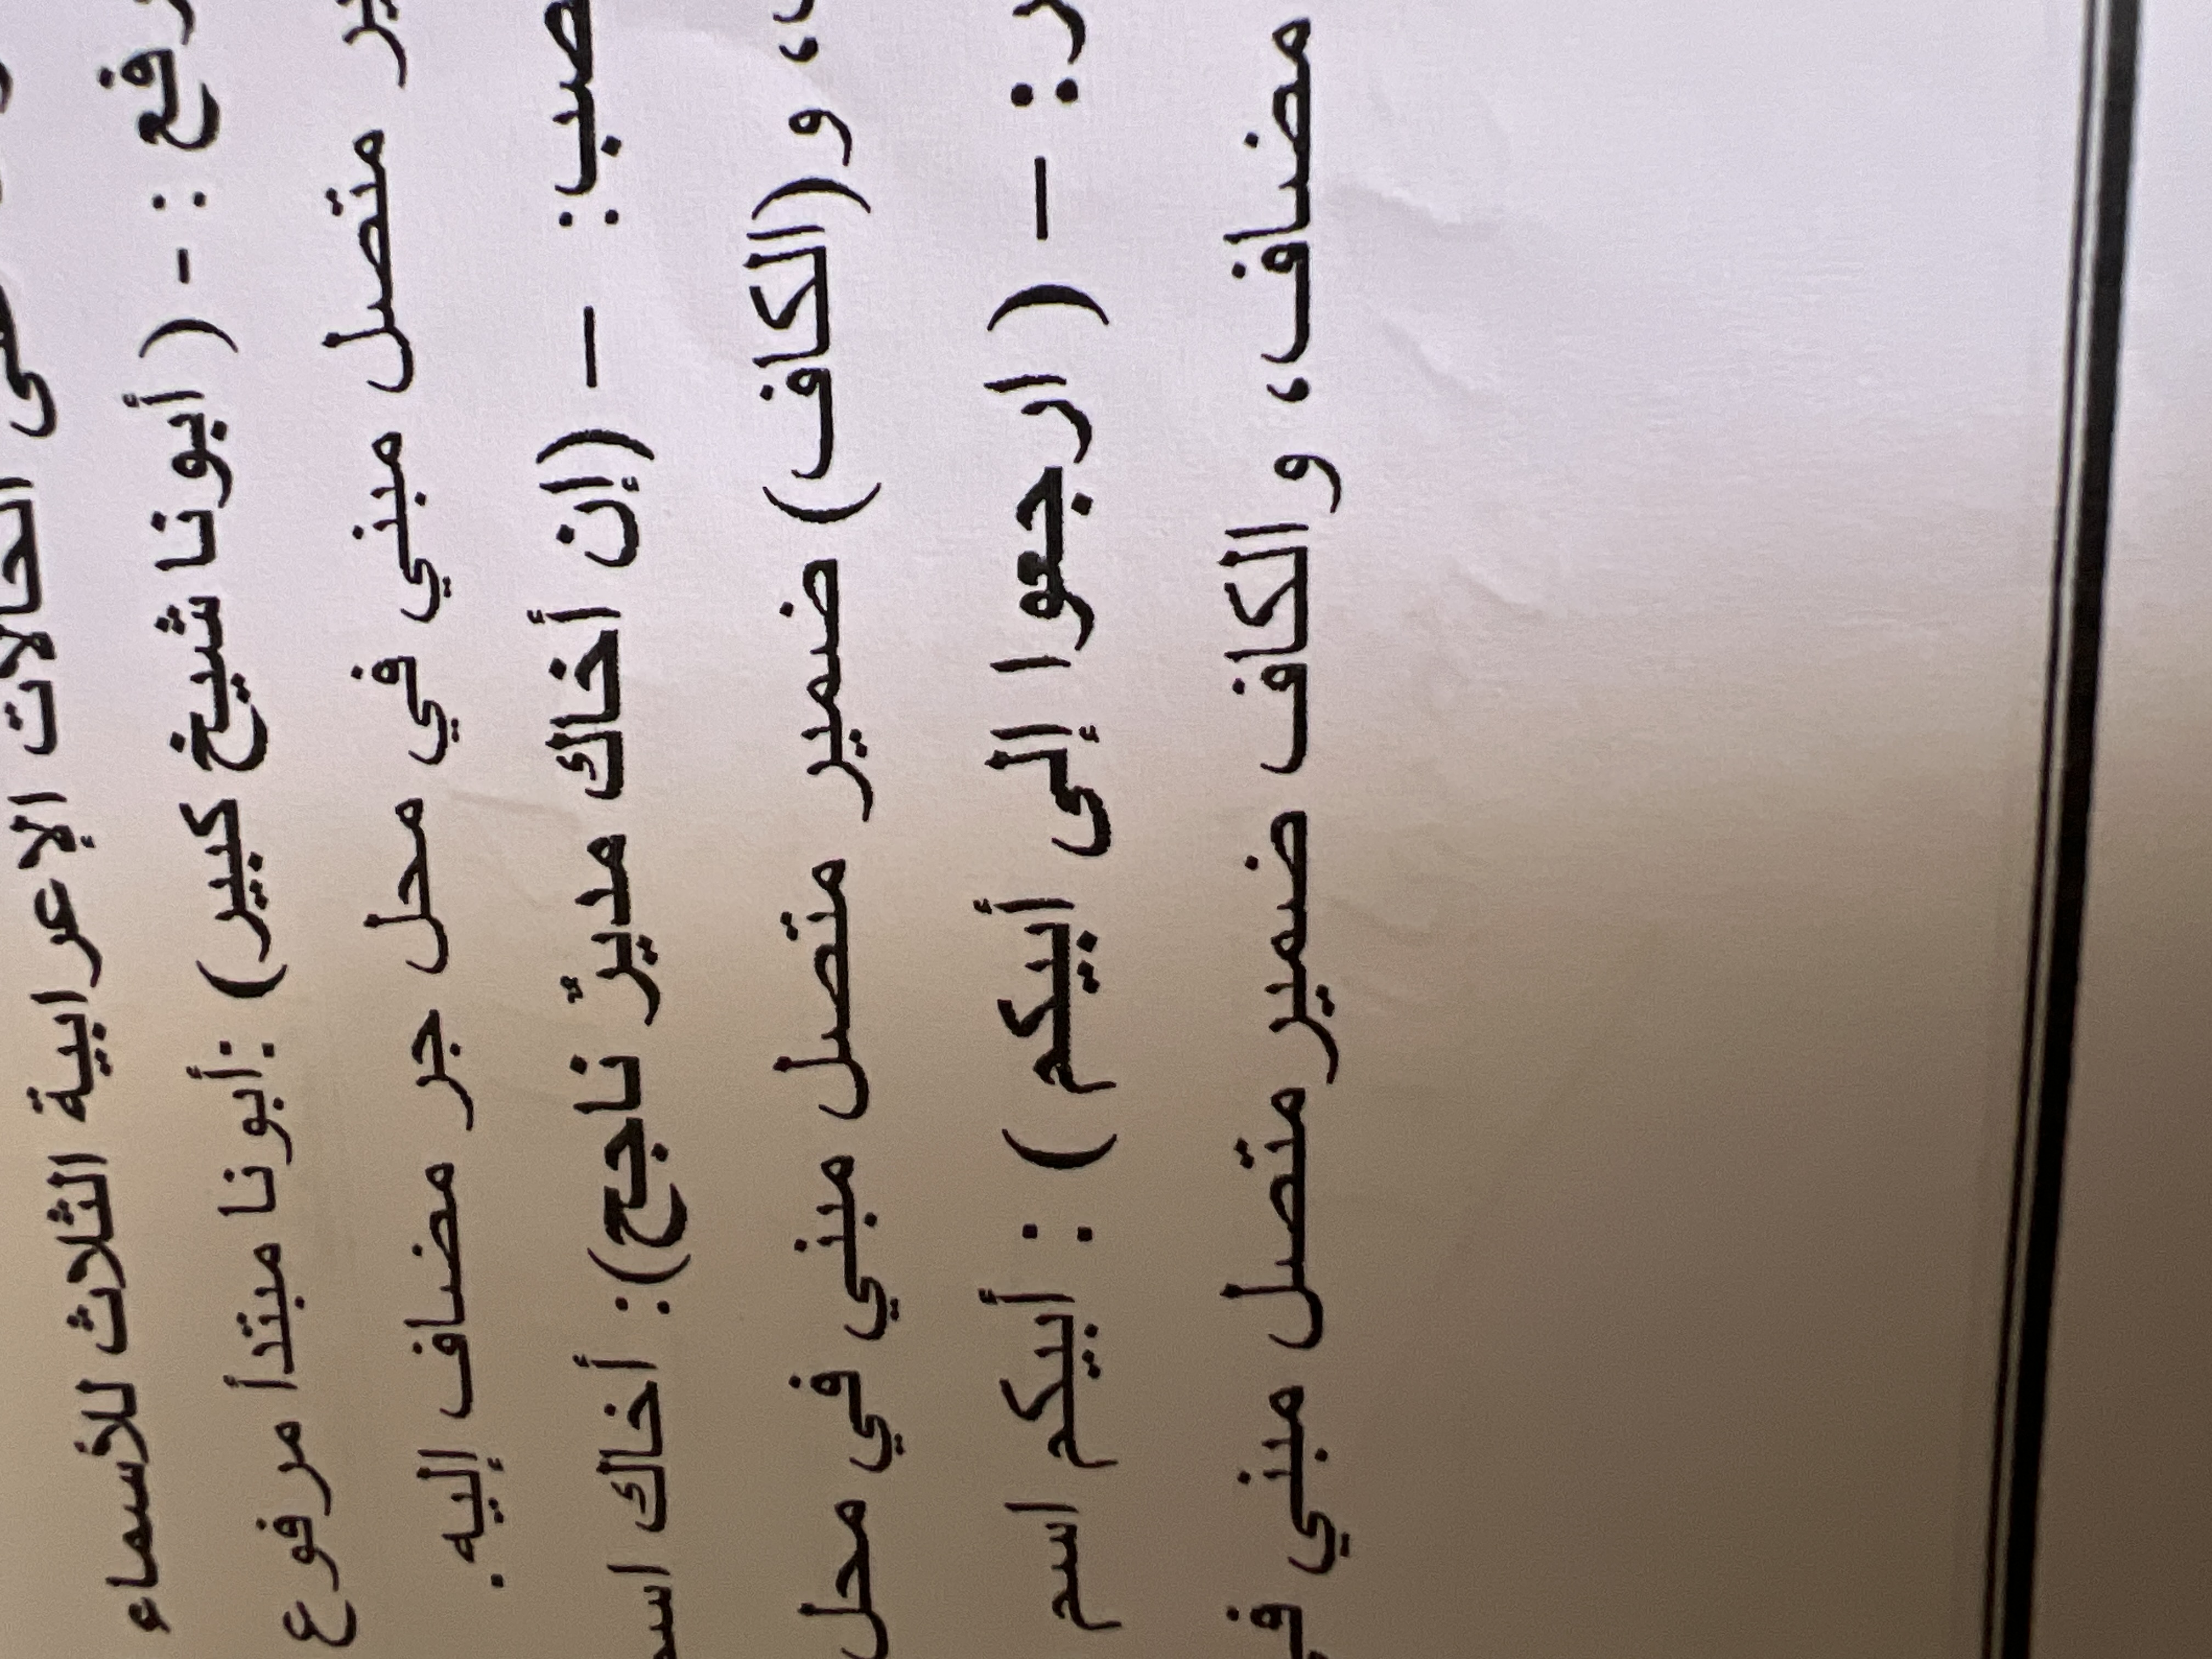 الحالات الإعرابية الثلاث للأسماء
: - ( أبونا شيخ كبير) :أبونا مبتدأ مرفوع
متصل مبني في محل جر مضاف إليه.
: – (إن أخاك مديرٌ ناجح): أخاك
و(الكاف) ضمير متصل مبني في محل
: – ( ارجعوا إلى أبيكم ) : أبيكم اسم
مضاف، والكاف ضمير متصل مبني في